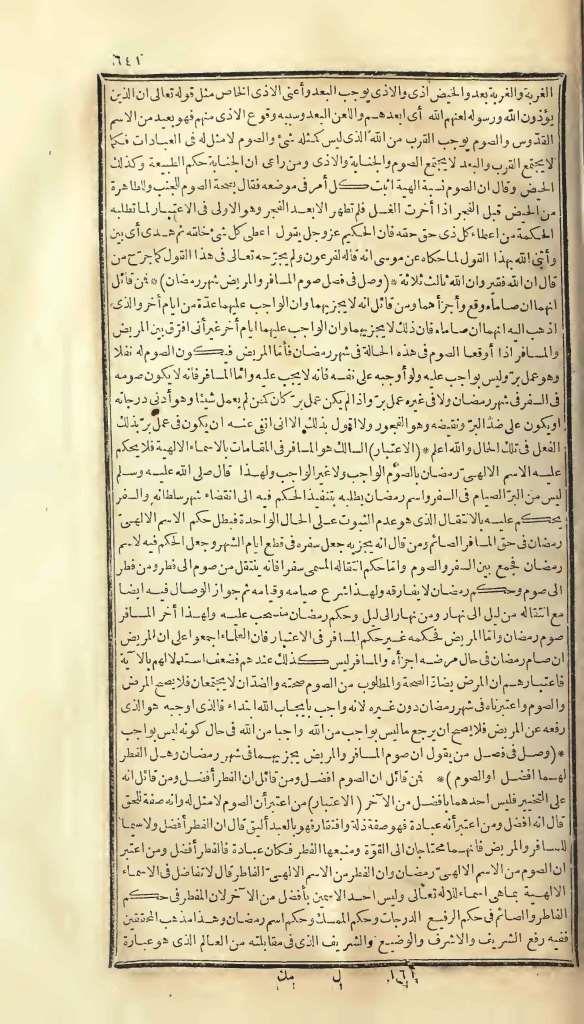 ٦٤١
الغربة والغربة بعد والحيض أذى والاذى يوجب البعد وأعنى الاذى الخاص مثل قوله تعالى ان الذين
يؤذون الله ورسوله لعنهم الله أى ابعدهم واللعن البعد وسببه وقوع الاذى منهم فهو بعيد من الاسم
القدّوس والصوم يوجب القرب من الله الذى ليس كمثله شئ والصوم لا مثل له فى العبادات فكما
لا يجتمع القرب والبعد لا يجتمع الصوم والجنابة والاذى ومن راعى ان الجنابة حكم الطبيعة وكذلك
الحيض وقال ان الصوم نسبة الهية اثبت كل أمر فى موضعه فقال بصحة الصوم للجنب وللطاهرة
من الحيض قبل الفجر اذا أخرت الغسل فلم تطهر الا بعد الفجر وهو الاولى فى الاعتبار لما تطلبه
الحكمة من اعطاء كل ذى حق حقه فان الحكيم عز وجل يقول اعطى كل شئ خلقه ثم هدى أى بين
وأثنى الله بهذا القول لما حكاه عن موسى انه قاله لفرعون ولم يجرّحه تعالى فى هذا القول كما جرّح من
قال ان الله فقير وان الله ثالث ثلاثة *(وصل فى فصل صوم المسافر والمريض شهر رمضان)* فمن قائل
انهما ان صاماه وقع وأجزأهما ومن قائل انه لا يجزيهما وان الواجب عليهما عدّة من ايام أخر والذى
اذهب اليه انهما ان صاماه فان ذلك لا يجزيهما وان الواجب عليهما ايام أخر غير أنى افرّق بين المريض
والمسافر اذا أوقعا الصوم فى هذه الحالة فى شهر رمضان فأمّا المريض فيكون الصوم له نفلا
وهو عمل برّ وليس بواجب عليه ولو أوجبه على نفسه فانه لا يجب عليه وامّا المسافر فانه لا يكون صومه
فى السفر فى شهر رمضان ولا فى غيره عمل برّ واذا لم يكن عمل برّ كان كمن لم يعمل شيئا وهو أدنى درجاته
او يكون على ضدّ البرّ ونقيضه وهو الفجور ولا اقول بذلك الا انى انفى عنه ان يكون فى عمل برّ بذلك
الفعل فى تلك الحال والله اعلم *(الاعتبار) السالك هو المسافر فى المقامات بالاسماء الالهية فلا يحكم
عليه الاسم الالهىّ رمضان بالصوم الواجب ولا غير الواجب ولهذا قال صلى الله عليه وسلم
ليس من البرّ الصيام فى السفر واسم رمضان يطلبه بتنفيذ الحكم فيه الى انقضاء شهر سلطانه والسفر
يحكم عليه بالانتقال الذى هو عدم الثبوت على الحال الواحدة فبطل حكم الاسم الالهىّ
رمضان فى حق المسافر الصائم ومن قال انه يجزيه جعل سفره فى قطع ايام الشهر وجعل الحكم فيه لاسم
رمضان فجمع بين السفر والصوم وامّا حكم انتقاله المسمى سفرا فانه ينتقل من صوم الى فطر ومن فطر
الى صوم وحكم رمضان لا يفارقه ولهذا شرع صيامه وقيامه ثم جواز الوصال فيه ايضا
مع انتقاله من ليل الى نهار ومن نهار الى ليل وحكم رمضان منسحب عليه ولهذا أجزأ المسافر
صوم رمضان وامّا المريض فحكمه غير حكم المسافر فى الاعتبار فان العلماء اجمعوا على ان المريض
ان صام رمضان فى حال مرضه اجزأه والمسافر ليس كذلك عندهم فضعف استدلالهم بالآية
فاعتبارهم ان المرض يضادّ الصحة والمطلوب من الصوم صحته والضدّان لا يجتمعان فلا يصح المرض
والصوم واعتبرناه فى شهر رمضان دون غيره لانه واجب بايجاب الله ابتداء فالذى اوجبه هو الذى
رفعه عن المريض فلا يصح ان يرجع ما ليس بواجب من الله واجبا من الله فى حال كونه ليس بواجب
*(وصل فى فصل من يقول ان صوم المسافر والمريض يجزيهما فى شهر رمضان وهل الفطر
لهما افضل او الصوم)* فمن قائل ان الصوم افضل ومن قائل ان الفطر أفضل ومن قائل انه
على التخيير فليس احدهما بافضل من الآخر (الاعتبار) من اعتبر أن الصوم لا مثل له وانه صفة للحق
قال انه افضل ومن اعتبر أنه عبادة فهو صفة ذلة وافتقار فهو بالعبد أليق قال ان الفطر أفضل ولا سيما
للمسافر والمريض فانهما محتاجان الى القوّة ومنبعها الفطر فكان عبادة فالفطر أفضل ومن اعتبر
ان الصوم من الاسم الالهىّ رمضان وان الفطر من الاسم الالهىّ الفاطر قال لا تفاضل فى الاسماء
الالهية بما هى اسماء للاله تعالى وليس احد الاسمين بأفضل من الآخر لان المفطر فى حكم
الفاطر والصائم فى حكم الرفيع الدرجات وحكم الممسك وحكم اسم رمضان وهذا مذهب المحققين
ففيه رفع الشريف والاشرف والوضيع والشريف الذى فى مقابلته من العالم الذى هو عبارة
١٦١ ل مك